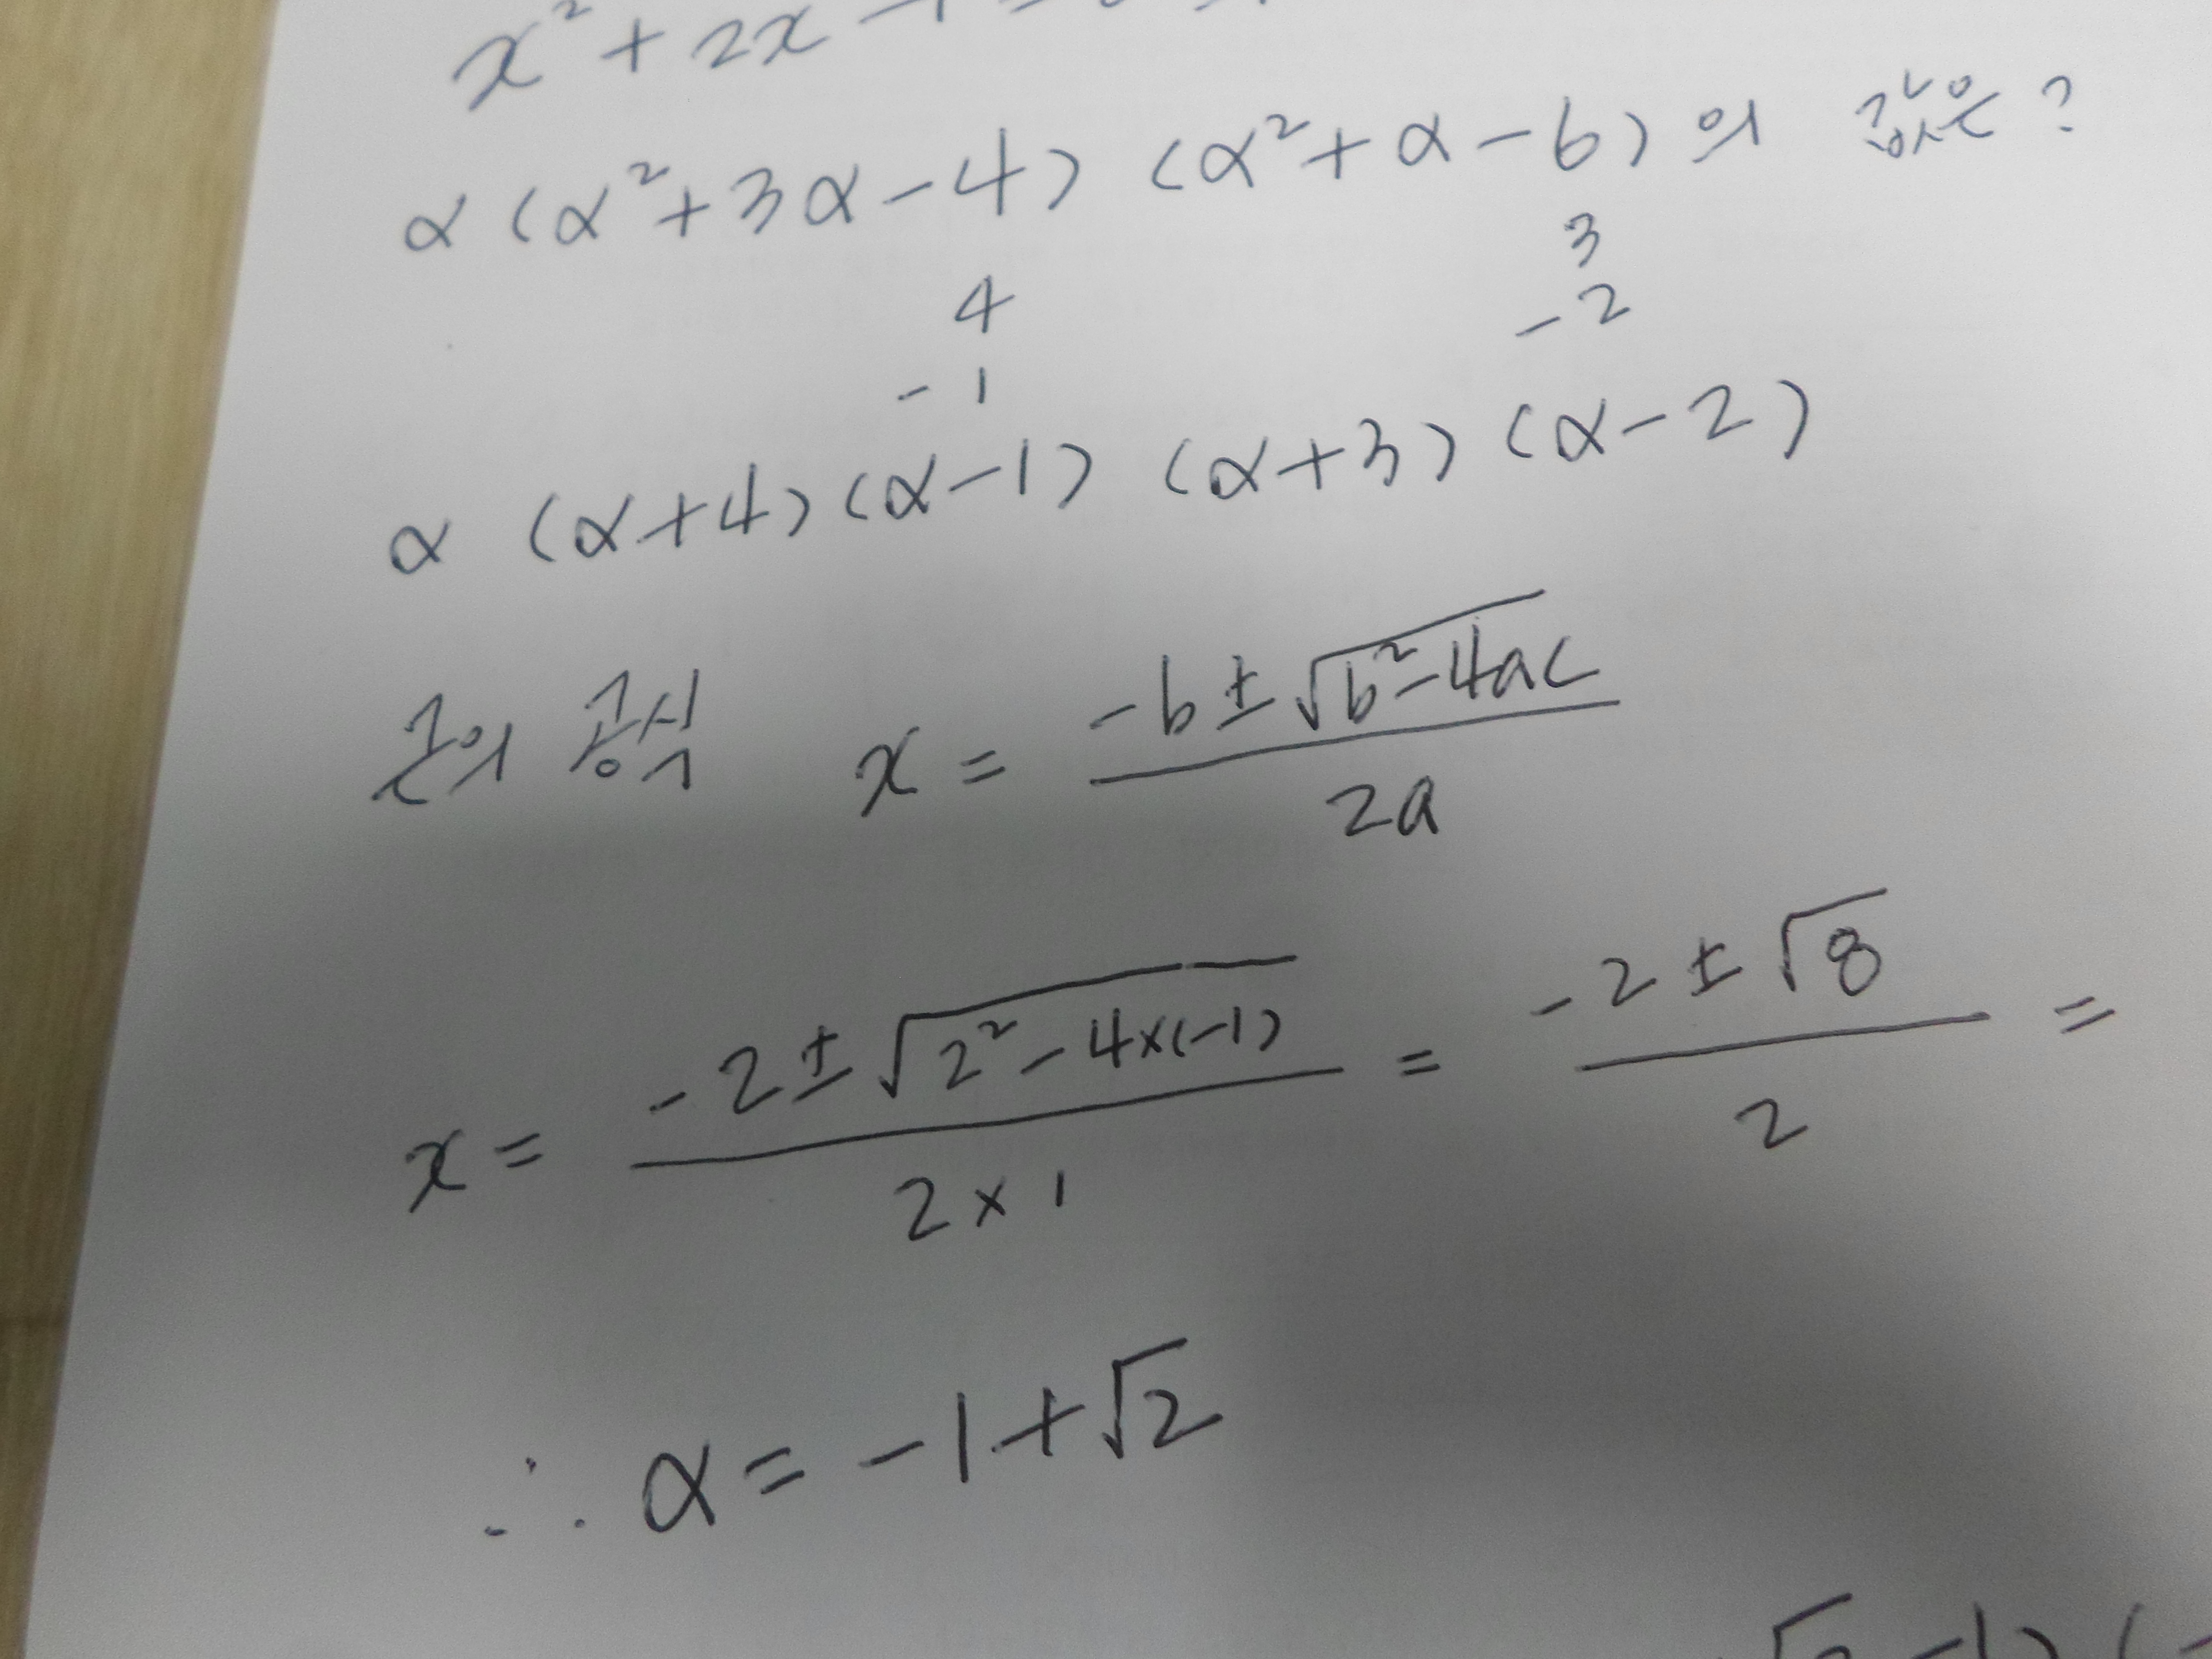 x² + 2x - 1 =
α (α² + 3α - 4) (α² + α - 6) 의 값은?
4 3
-1 -2
α (α + 4) (α - 1) (α + 3) (α - 2)
근의 공식 x = (-b ± √(b² - 4ac)) / 2a
x = (-2 ± √(2² - 4×(-1))) / (2 × 1) = (-2 ± √8) / 2 =
∴ α = -1 + √2